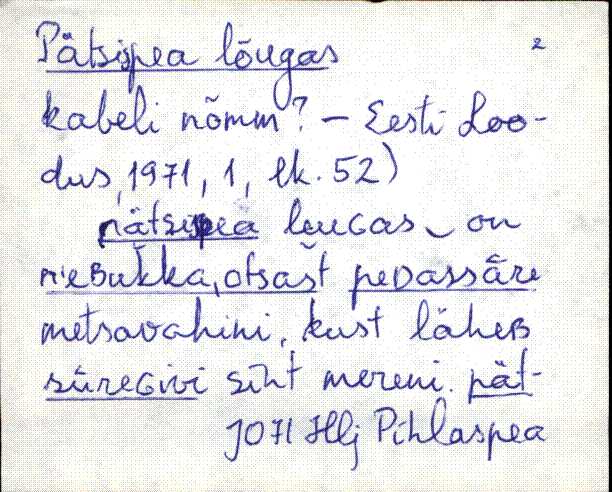 Pätsipea lõugas 2
kabeli nõmm? – Eesti Loo-
dus, 1971, 1, lk. 52)
pätsipea lɐuGas on
mieBukka, otsast peDassāre
metsavahini, kust läheB
sūreGivi siht mereni. pät-
J071 Hlj Pihlaspea